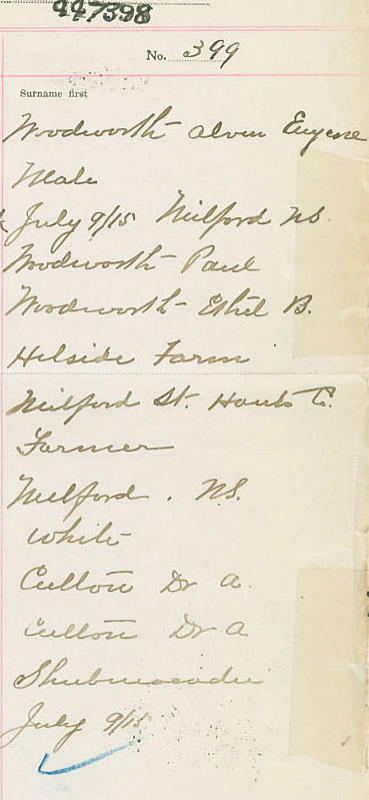 447398
No. 399
Surname first
Woodworth Alvin Eugene
Male
July 9/15 Milford NS.
Woodworth Paul
Woodworth Ethel B.
Hilside Farm
Milford St. Hants C.
Farmer
Milford. NS.
White
Cullon Dr A.
Cullon Dr A
Shubenacadie
July 9/15